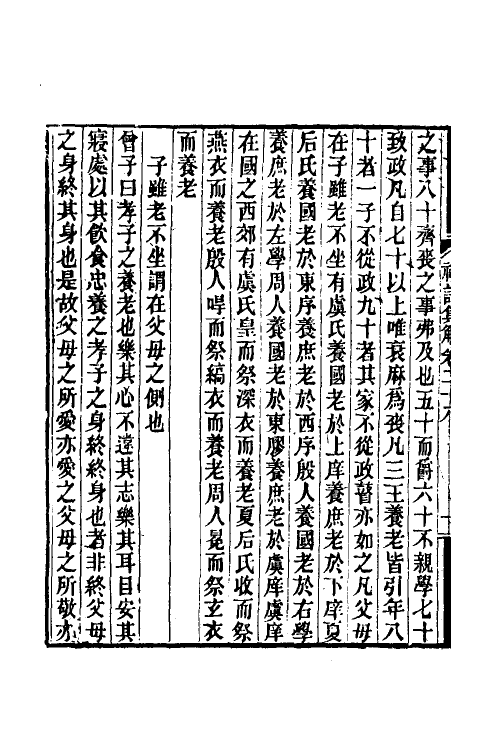 之事八十齊喪之事弗及也五十而爵六十不親學七十
致政凡自七十以上唯衰麻爲喪凡三王養老皆引年八
十者一子不從政九十者其家不從政瞽亦如之凡父母
在子雖老不坐有虞氏養國老於上庠養庶老於下庠夏
后氏養國老於東序養庶老於西序殷人養國老於右學
養庶老於左學周人養國老於東膠養庶老於虞庠虞庠
在國之西郊有虞氏皇而祭深衣而養老夏后氏收而祭
燕衣而養老殷人哻而祭縞衣而養老周人冕而祭玄衣
而養老
子雖老不坐謂在父母之側也
曾子曰孝子之養老也樂其心不違其志樂其耳目安其
寢處以其飲食忠養之孝子之身終終身也者非終父母
之身終其身也是故父母之所愛亦愛之父母之所敬亦